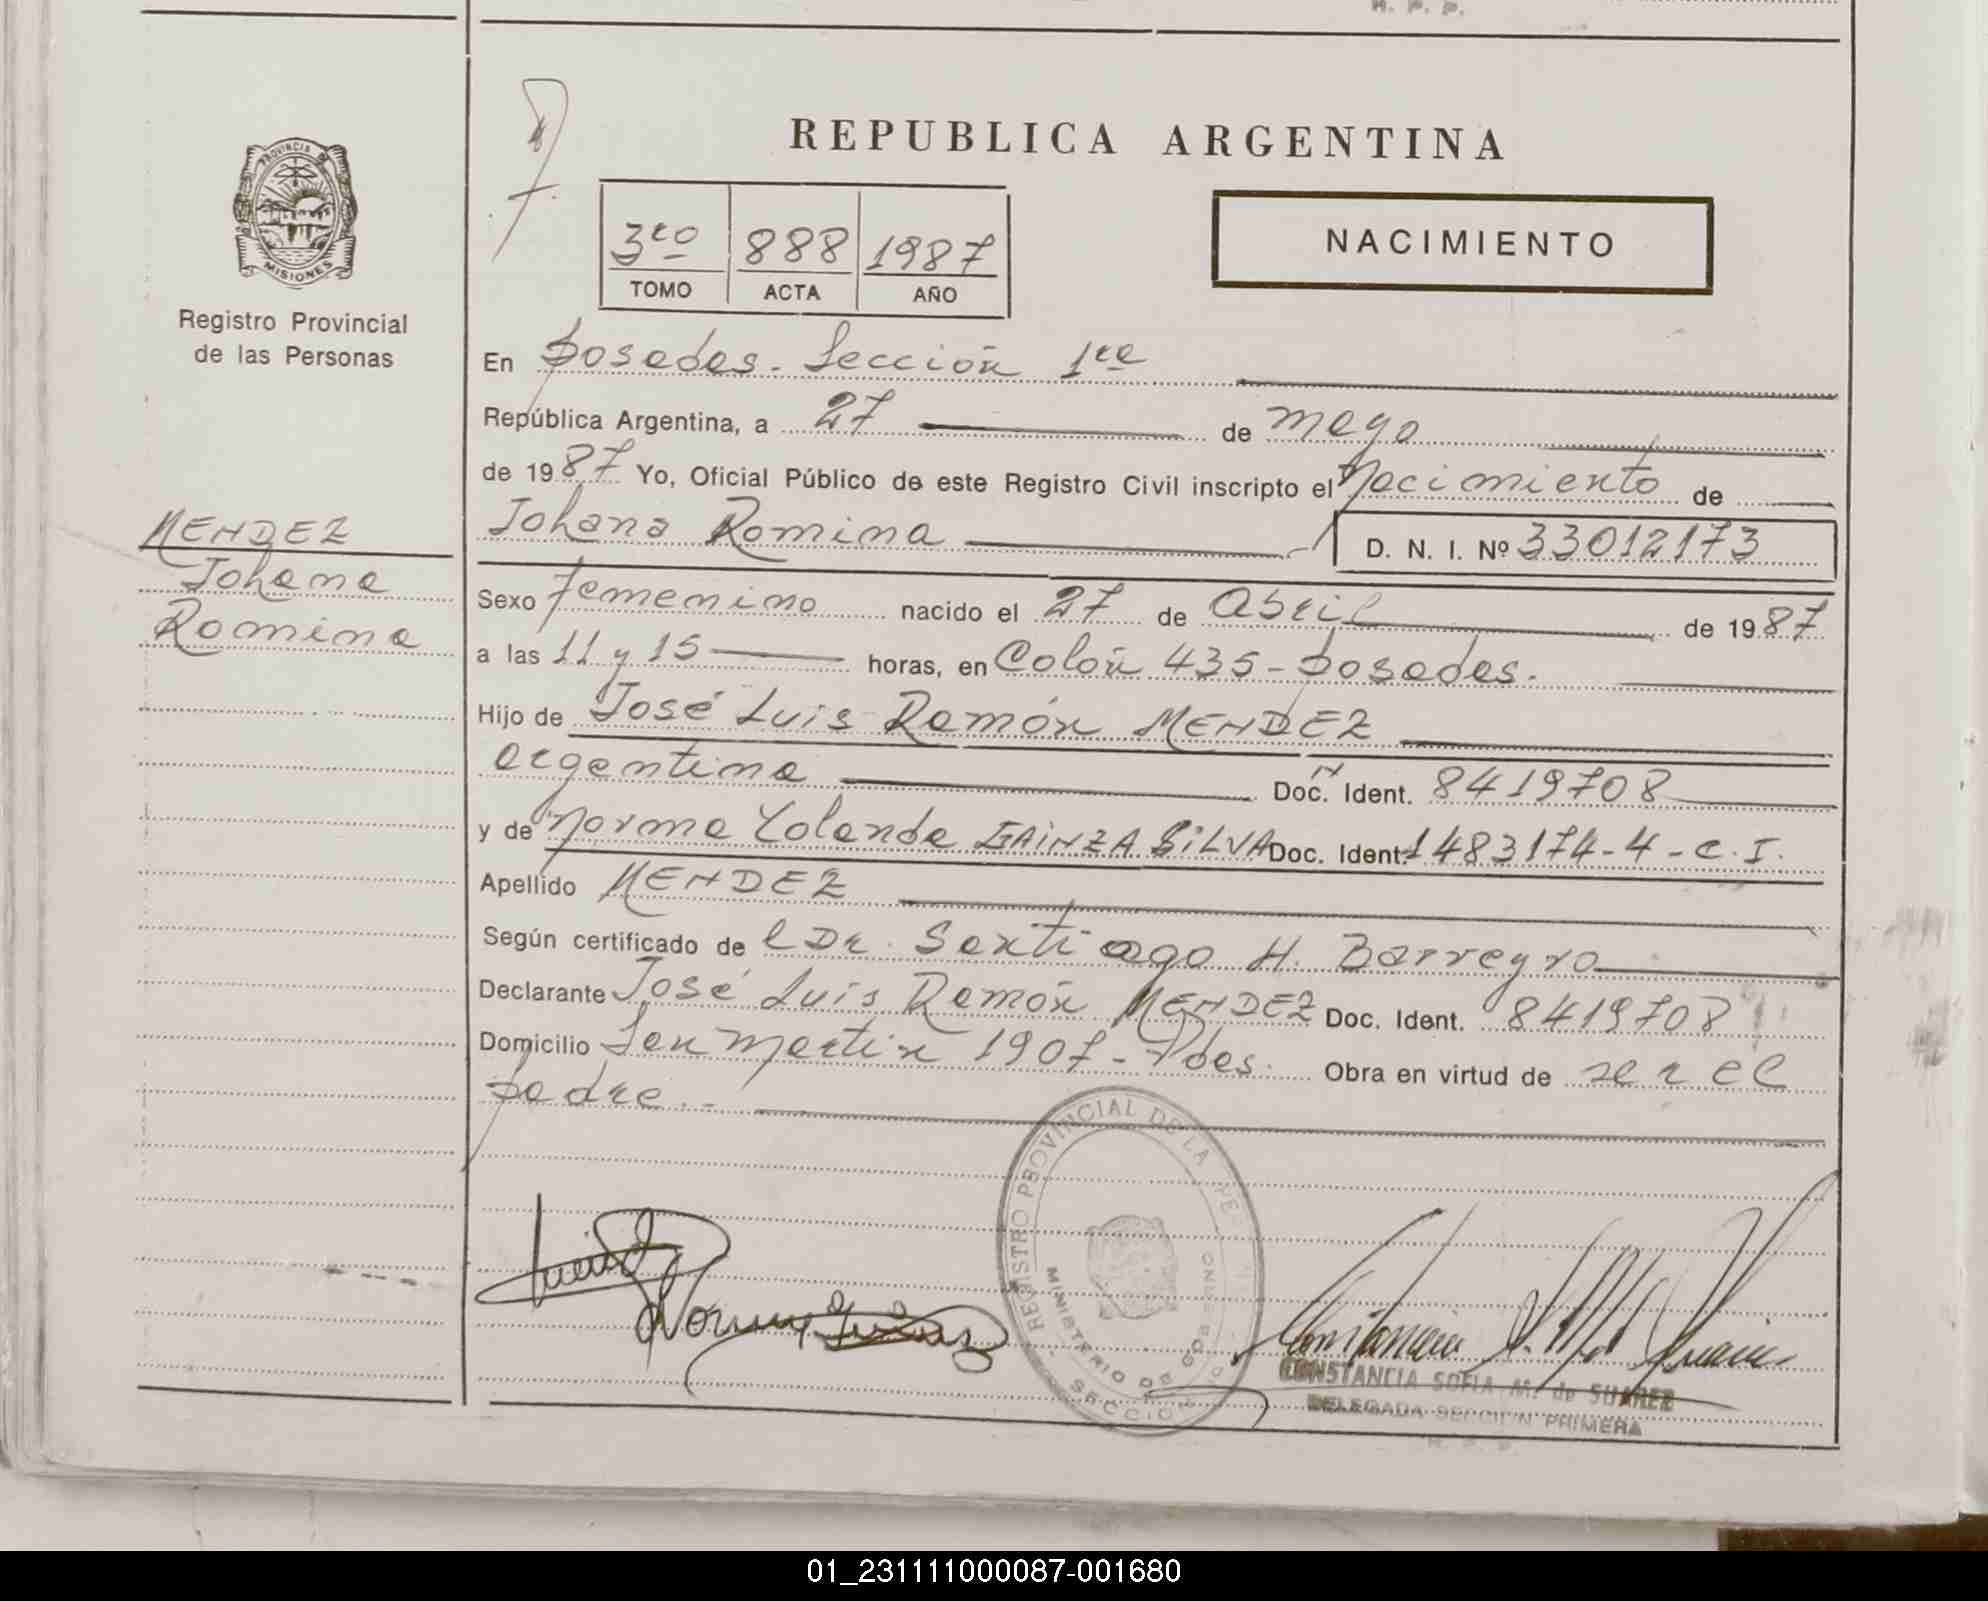 R. P. P.
REPUBLICA ARGENTINA
PROVINCIA DE
MISIONES
Registro Provincial
de las Personas
3ro 888 1987
TOMO ACTA AÑO
NACIMIENTO
En Posadas - Sección 1ra
República Argentina, a 27 de mayo
de 1987 Yo, Oficial Público de este Registro Civil inscripto el Nacimiento de
Johana Romina D. N. I. Nº 33012173
MENDEZ
Johana
Romina
Sexo femenino nacido el 27 de Abril de 1987
a las 11 y 15 horas, en Colón 435 - Posadas.
Hijo de José Luis Ramón MENDEZ
argentina Doc. Ident. 8419708
y de Norma Yolanda GAINZA SILVA Doc. Ident. 1483174-4-C.I.
Apellido MENDEZ
Según certificado de l Dr. Santiago H. Barreyro
Declarante José Luis Ramón MENDEZ Doc. Ident. 8419708
Domicilio San Martín 1907 - Pdas. Obra en virtud de ser el
padre. -
REGISTRO PROVINCIAL DE LA
MINISTERIO DE GOBIERNO
SECCION
CONSTANCIA SOFIA M. de SUAREZ
DELEGADA SECCION PRIMERA
R. P. P.
01_231111000087-001680